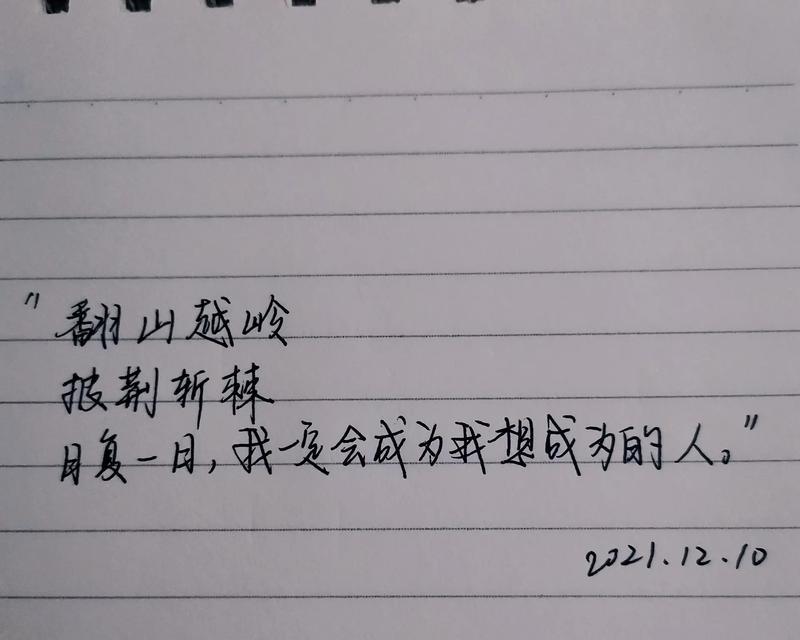 "翻山越岭
披荆斩棘
日复一日，我一定会成为我想成为的人。"
2021.12.10